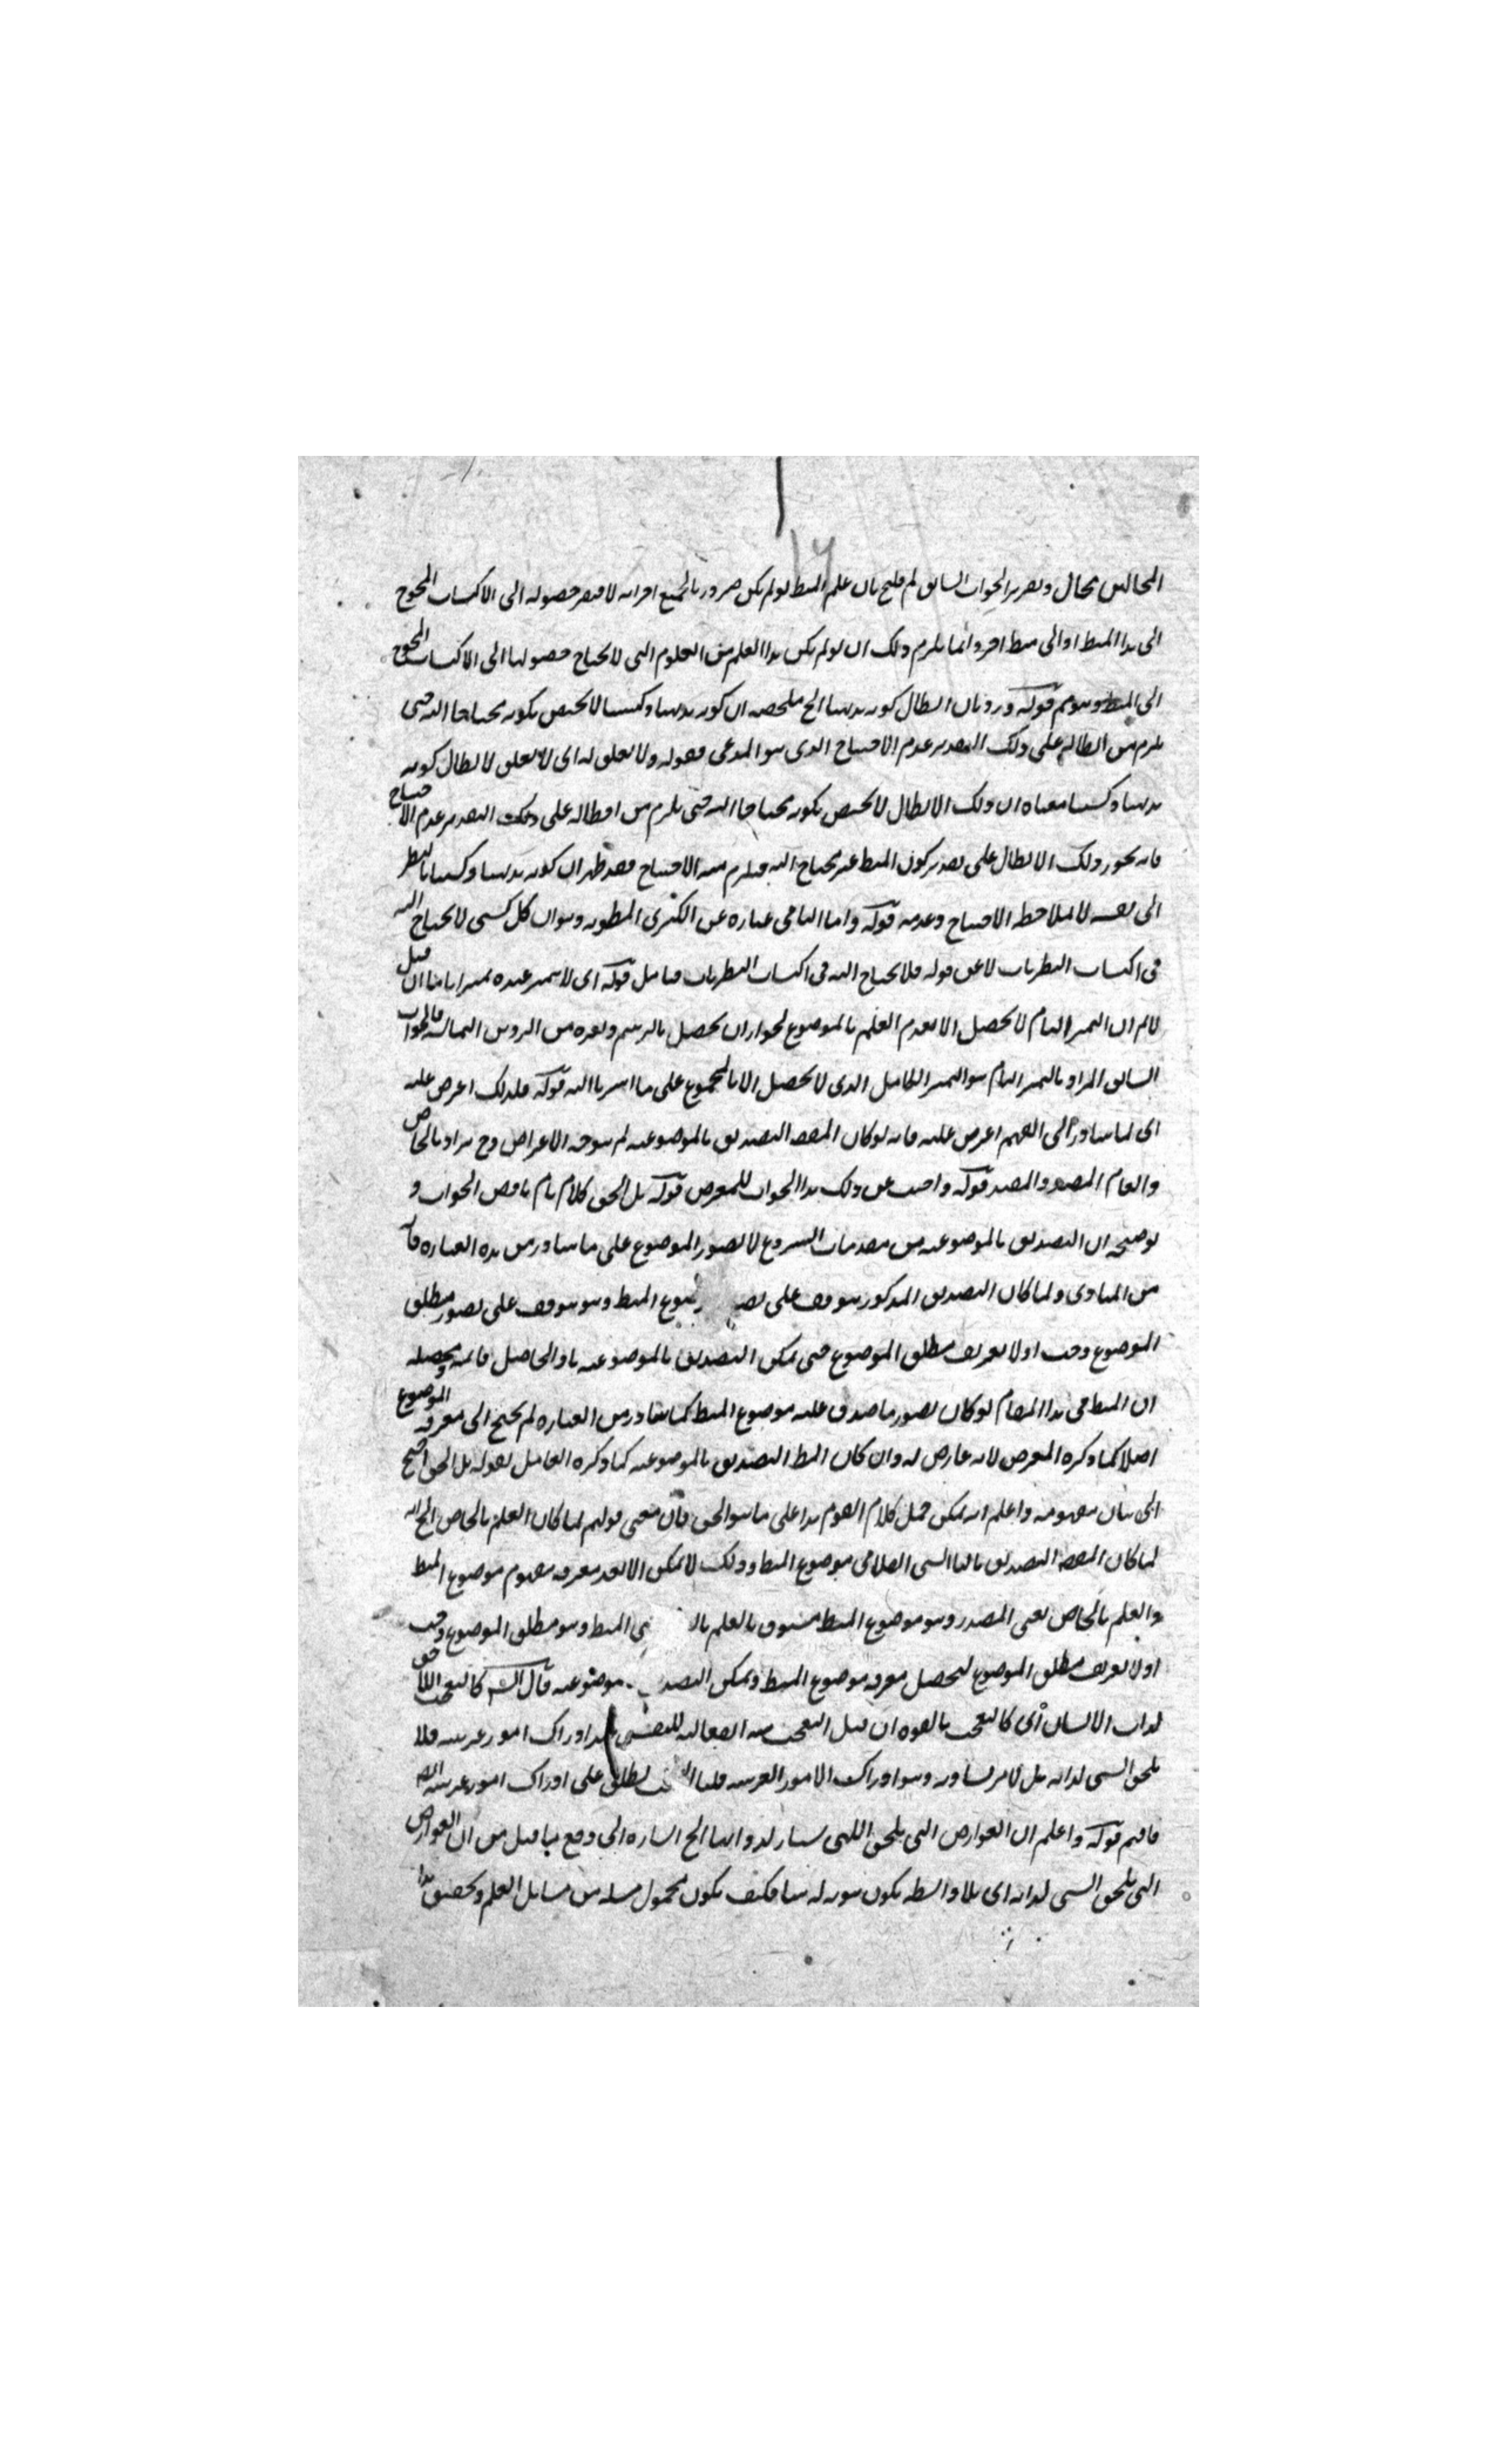 المحالين محال وتقرير الجواب السابق لم قلتم بان علم المنط لو لم يكن ضروريا بجميع اجزائه لافتقر حصوله الى الاكتساب المحوج
الى هذا المنط او الى منط اخر وانما يلزم ذلك ان لو لم يكن هذا العلم من العلوم التى لا يحتاج حصولها الى الاكتساب المحوج
الى المنط وهو مم قوله ورد بان ابطال كونه بديهيا الخ ملخصه ان كونه بديهيا وكسبيا لا يختص بكونه محتاجا اليه حتى
يلزم من ابطاله على ذلك التقدير عدم الاحتياج الذى هو المدعى فقوله ولا تعلق له اى لا تعلق لابطال كونه
بديهيا وكسبيا معناه ان ذلك الابطال لا يختص بكونه محتاجا اليه حتى يلزم من ابطاله على ذلك التقدير عدم الاحتياج
فانه يجوز ذلك الابطال على تقدير كون المنط غير محتاج اليه فيلزم منه الاحتياج فقد ظهر ان كونه بديهيا وكسبيا بالنظر
الى نفسه لا بملاحظة الاحتياج وعدمه قوله واما الثانى عبارة عن الكبرى المطوية وهو ان كل كسبى لا يحتاج اليه
فى اكتساب النظريات لا عن قوله فلا يحتاج اليه فى اكتساب النظريات فتامل قوله اى لا يتميز عنده تميزا تاما ان قيل
لانم ان التميز التام لا يحصل الا بعد العلم بالموضوع لجواز ان يحصل بالرسم وغيره من الرؤس الثمانية فالجواب
السابق المراد بالتميز التام هو التميز الكامل الذى لا يحصل الا بالمجموع على ما اشرنا اليه قوله فلذلك اعترض عليه
اى لما تبادر الى الفهم اعترض عليه فانه لو كان المقصد التصديق بالموضوعية لم يتوجه الاعتراض وح يراد بالخاص
والعام المقيد والمطلق قوله واجيب عن ذلك هذا الجواب للمعترض قوله بل الحق كلام تام ناقض الجواب و
توضيحه ان التصديق بالموضوعية من مقدمات الشروع لا تصور الموضوع على ما يتبادر من هذه العبارة فانه
من المبادى ولما كان التصديق المذكور يتوقف على موضوع المنط وهو يتوقف على تصور مطلق
الموضوع وجب اولا تعريف مطلق الموضوع حتى يمكن التصديق بالموضوعية
ان المنط فى هذا المقام لو كان تصور ما صدق عليه موضوع المنط كما يتبادر من العبارة لم يحتج الى معرفة الموضوع
اصلا كما ذكره المعترض لانه عارض له وان كان المط التصديق بالموضوعية كما ذكره القائل بقوله بل الحق احتيج
الى بيان مفهومه واعلم انه يمكن حمل كلام القوم هذا على ما هو الحق فان معنى قولهم لما كان العلم بالخاص الخ انه
لما كان المقصد التصديق بان الشى الفلانى موضوع المنط وذلك لا يمكن الا بعد معرفة مفهوم موضوع المنط
والعلم بالخاص يعنى المقيد وهو موضوع المنط مسبوق بالعلم المنط وهو مطلق الموضوع وجب
اولا تعريف مطلق الموضوع ليحصل معرفة موضوع المنط ويمكن التصديق بموضوعيته قال الشه كالتعجب اللاحق
لذات الانسان اى كالتعجب بالقوة ان قيل التعجب هيئة انفعالية للنفس عند ادراك امور غريبة فلا
يلحق الشى لذاته بل لامر يساويه وهو ادراك الامور الغريبة قلنا التعجب يطلق على ادراك امور غريبة
فافهم قوله واعلم ان العوارض التى يلحق الاشياء لذواتها الخ اشارة الى دفع ما قيل من ان العوارض
التى يلحق الشى لذاته اى بلا واسطة يكون ثبوته له بينا فكيف يكون محمول مسئلة من مسائل العلم وتحقيق هذا